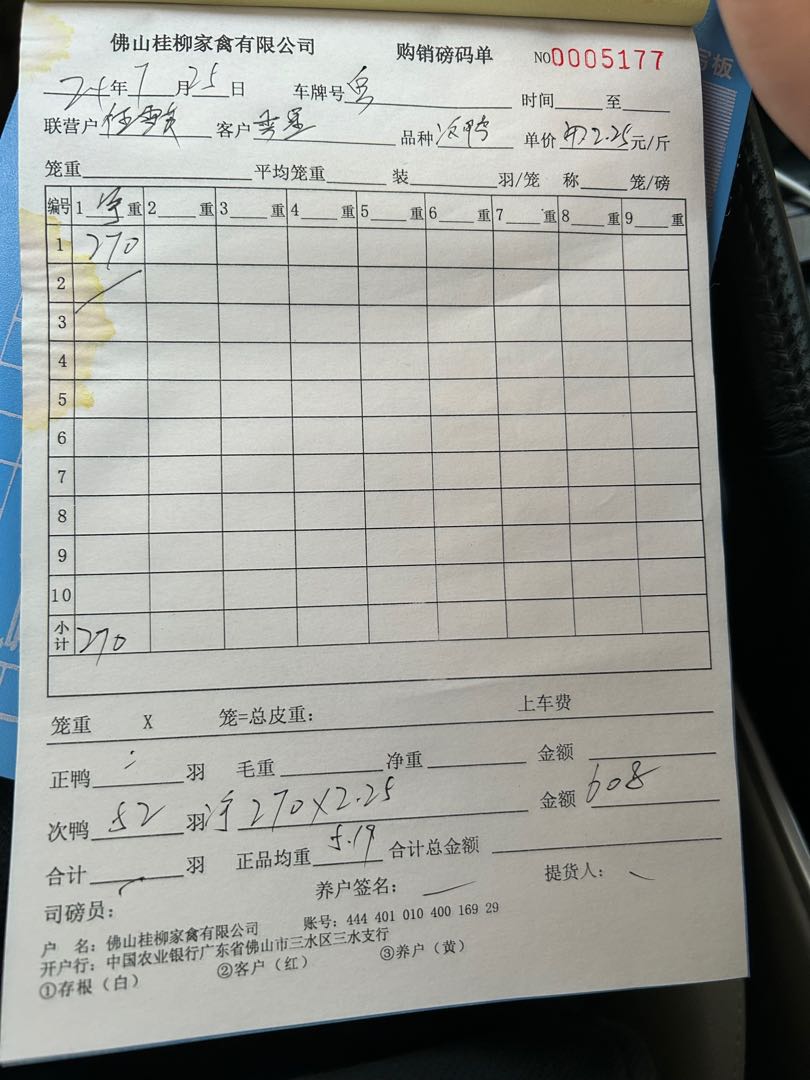 佛山桂柳家禽有限公司 购销磅码单 NO0005177
24年7月25日 车牌号 时间 至
联营户 客户 品种次鸭 单价 2.25元/斤
笼重 平均笼重 装 羽/笼 称 笼/磅
编号 1 净 重 2 重 3 重 4 重 5 重 6 重 7 重 8 重 9 重
1 270
2
3
4
5
6
7
8
9
10
小计 270
笼重 X 笼=总皮重: 上车费
正鸭 羽 毛重 净重 金额
次鸭 52 羽 净 270X2.25 金额 608
合计 羽 正品均重 5.19 合计总金额
养户签名: 提货人:
司磅员:
户 名: 佛山桂柳家禽有限公司 账号: 444 401 010 400 169 29
开户行: 中国农业银行广东省佛山市三水区三水支行
①存根(白) ②客户(红) ③养户(黄)
写板